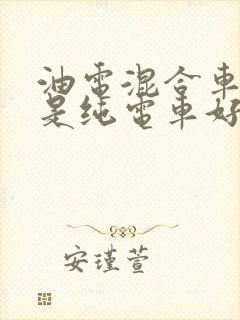 油電混合車
是純電車好
安瑾萱